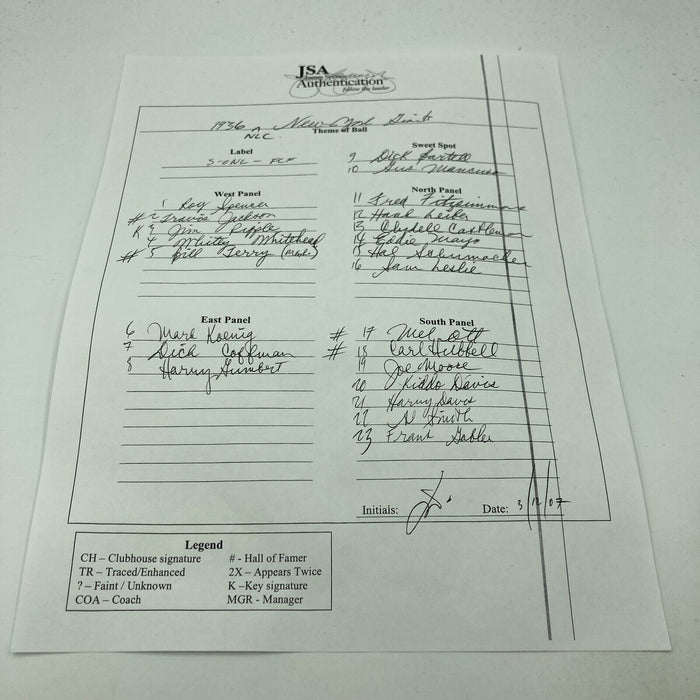 JSA
Authentication
follow the leader
1936 New York Giants
NLC.
Theme of Ball
Label
S-ONL - FCF
Sweet Spot
9 Dick Bartell
10 Gus Mancuso
West Panel
1 Roy Spencer
# 2 Travis Jackson
K 3 Jim Ripple
4 Whitey Whitehead
# 5 Bill Terry
North Panel
11 Fred Fitzsimmons
12 Hank Leiber
13 Clydell Castleman
14 Eddie Mayo
15 Hal Schumacher
16 Sam Leslie
East Panel
6 Mark Koenig
7 Dick Coffman
8 Harry Gumbert
South Panel
# 17 Mel Ott
# 18 Carl Hubbell
19 Joe Moore
20 Kiddo Davis
21 Harry Davis
22 Al Smith
23 Frank Gabler
Initials:
Date: 3/12/07
Legend
CH – Clubhouse signature
# - Hall of Famer
TR – Traced/Enhanced
2X – Appears Twice
? – Faint / Unknown
K –Key signature
COA – Coach
MGR - Manager